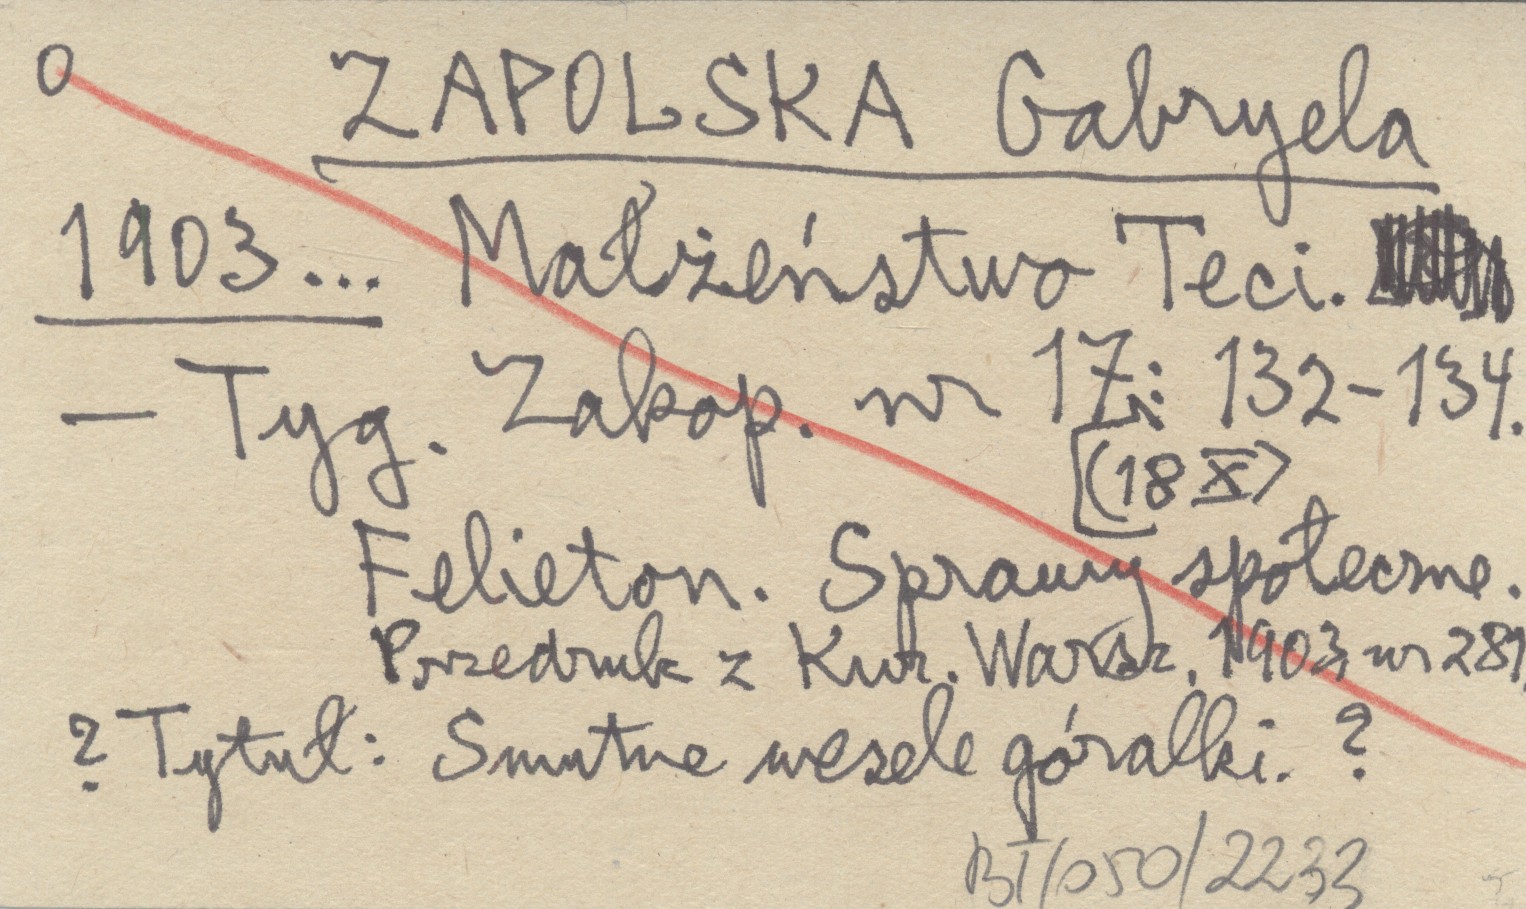 O ZAPOLSKA Gabryela
1903... Małżeństwo Teci.
— Tyg. Zakop. nr 17: 132-134.
(18 X)
Felieton. Sprawy społeczne.
Przedruk z Kur. Warsz. 1903 nr 281
? Tytuł: Smutne wesele góralki. ?
BT/050/2233